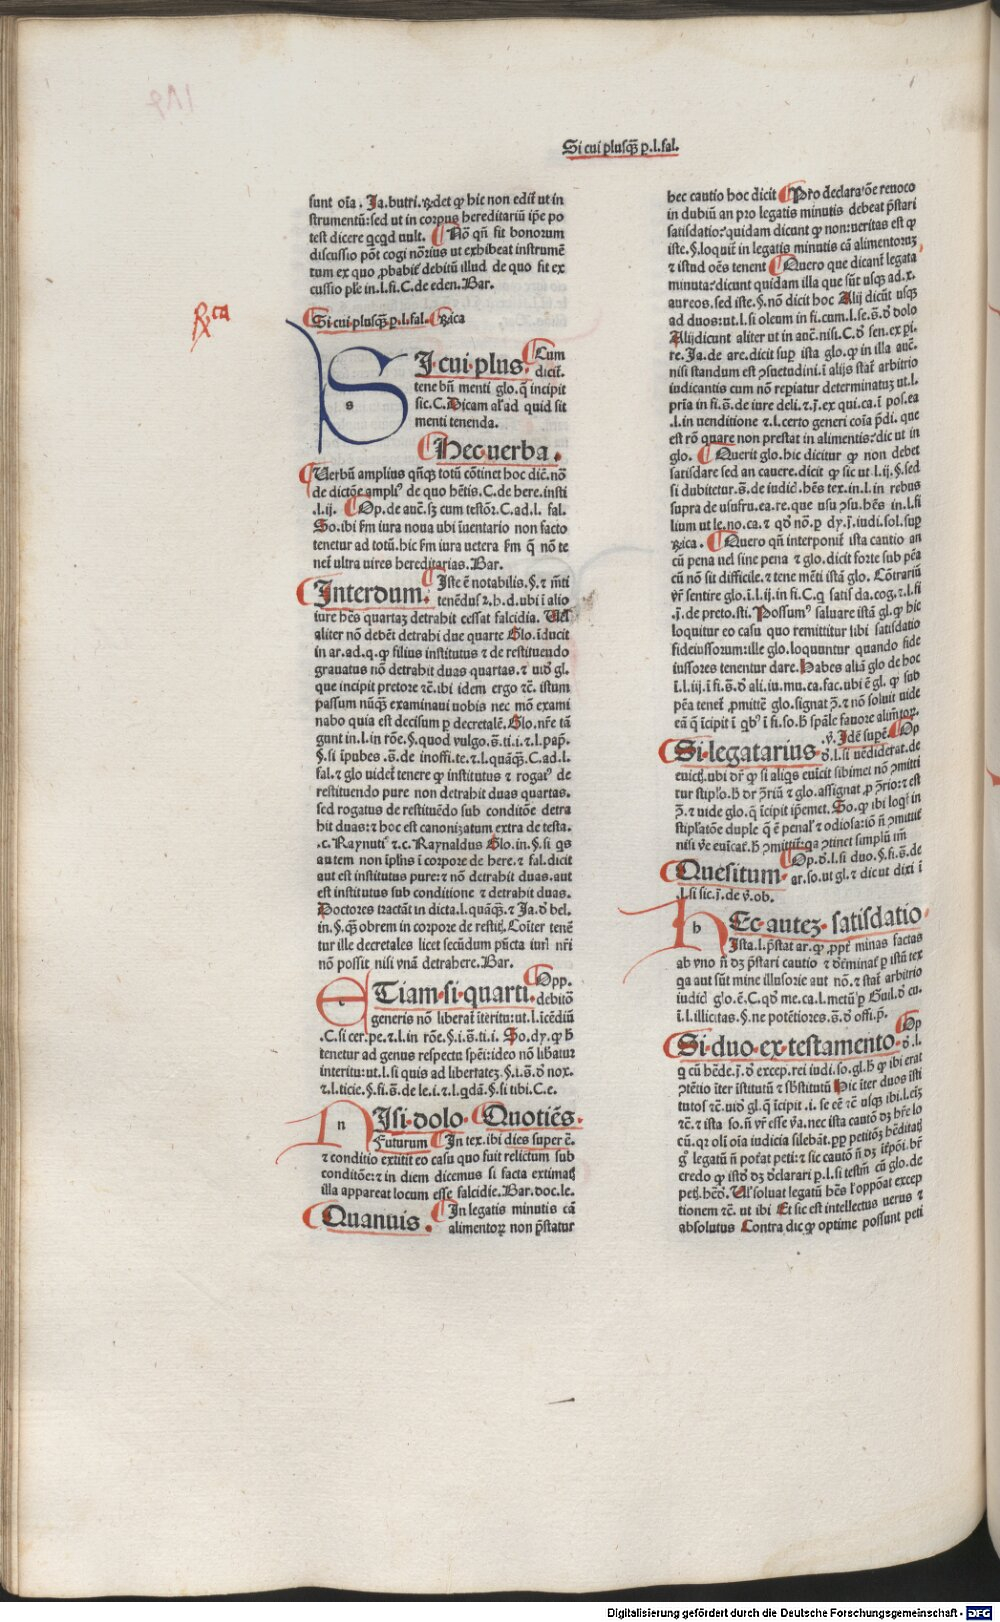 Si cui plusq̃ p.l.fal.
sunt oĩa. Ja.butri.⁊ det ꝙ hic non ediť ut in
strumentũ:sed ut in corpus hereditariũ ip̃e po
test dicere qcqd uult. Nõ qñ fit bonorum
discussio põt cogi nõrius ut exhibeat instrumẽ
tum ex quo ꝓbabiť debitũ illud de quo fit ex
cussio ple in.l.fi.C.de eden.Bar.
Si cui plusq̃ p.l.fal. Rica
Rica
SI cui plus. Cum
dicit.
tene bñ menti glo.q̃ incipit
sic.C.Dicam al'ad quid sit
menti tenenda.
Hec uerba.
Verbũ amplius qñqȝ totũ cõtinet hoc dic̃.nõ
de dictõe ampli⁹ de quo hẽtis.C.de here.insti
.l.ij. Op.de auc̃.sȝ cum testõr.C.ad.l. fal.
So.ibi fm iura noua ubi ĩuentario non facto
tenetur ad totũ.hic fm iura uetera fm q̃ nõ te
neť ultra uires hereditarias.Bar.
Interdum. Iste ẽ notabilis.§.⁊ m̃ti
tenẽdus ⁊.h.d.ubi ĩ alio
iure hẽs quartaȝ detrahit cessat falcidia. Vel
aliter nõ debẽt detrahi due quarte Glo.ĩducit
in ar.ad.q.ꝙ filius institutus ⁊ de restituendo
grauatus nõ detrahit duas quartas.⁊ uid̃ gl.
que incipit pretore ⁊c̃.ibi idem ergo ⁊c̃. istum
passum nũq̃ examinaui uobis nec mõ exami
nabo quia est decisum p decretalẽ. Glo.nr̃e tã
gunt in.l.in rõe.§.quod vulgo.s̃.ti.i.⁊.l.pap̃.
§.si ĩpubes .s̃.de inoffi.te.⁊.l.quãq̃.C.ad.l.
fal.⁊ glo uideť tenere ꝙ institutus ⁊ rogat⁹ de
restituendo pure non detrahit duas quartas.
sed rogatus de restituẽdo sub conditõe detra
hit duas:⁊ hoc est canonizatum extra de testa.
.c. Raynuti⁹ ⁊.c. Raynaldus Glo.in.§.si qs
autem non ĩplĩs ĩ corpore de here.⁊ fal.dicit
aut est institutus pure:⁊ nõ detrahit duas.aut
est institutus sub conditione ⁊ detrahit duas.
Doctores tractãt in dicta.l.quãq̃.⁊ Ja.d̃ bel.
in.§.q̃ obrem in corpore de restiť.Cõiter tenẽ
tur ille decretales licet secũdum pũcta iuri nr̃i
nõ possit nisi vnã detrahere.Bar.
ETiam si quarti. Opp.
debitõ
generis nõ liberať ĩteritu:ut.l.ĩcẽdiũ
.C.si cer.pe.⁊.l.in rõe.§.i.s̃.ti.i. So.dy.ꝙ h̃
tenetur ad genus respectu sp̃ei:ideo nõ lib̃atur
interitu:ut.l.si quis ad libertateȝ.§.i.s̃.d̃ nox.
⁊.l.ticie.§.fi.s̃.de le.i.⁊.l.qdã.§.si tibi.C.e.
NIsi dolo. Quotiẽs.
Futurum In tex.ibi dies super ẽ.
⁊ conditio extitit eo casu quo fuit relictum sub
conditõe:⁊ in diem dicemus si facta extimatȝ
illa appareat locum esse falcidie.Bar.doc.le.
Quanuis. In legatis minutis cã
alimentoꝝ non p̃statur
hec cautio hoc dicit Pro declara⁹õe renoco
in dubiũ an pro legatis minutis debeat p̃stari
satisdatio:quidam dicunt ꝙ non:ueritas est ꝙ
iste.§.loquiť in legatis minutis cã alimentoꝝ
⁊ istud oẽs tenent Quero que dicanť legata
minuta:dicunt quidam illa que sũt usqȝ ad.x.
aureos.sed iste.§.nõ dicit hoc Alij dicũt usqȝ
ad duos:ut.l.si oleum in fi.cum.l.se.s̃.d̃ dolo
Alij dicunt aliter ut in auc̃.nisi.C.d̃ sen.ex pi.
re. Ja.de are.dicit sup ista glo.ꝙ in illa auc̃.
nisi standum est ↄsuetudini.ĩ alijs stať arbitrio
iudicantis cum nõ repiatur determinatuȝ ut.l.
pr̃ia in fi.s̃.de iure deli.⁊.j̃.ex qui.ca.ĩ pos.ea
.l.in uenditione ⁊.l.certo generi coĩa p̃di. que
est rõ quare non prestat in alimentis:dic ut in
glo. Querit glo.hic dicitur ꝙ non debet
satisdare sed an cauere.dicit ꝙ sic ut.l.ij.§.sed
si dubitetur.s̃.de iudic̃.hẽs tex.in.l.in rebus
supra de usufru.ea.re.que usu ↄsu.hẽs in.l.si
lium ut le.no.ca.⁊ qd̃ nõ.p dy.j̃.iudi.sol.sup
⁊rica. Quero qñ interponiť ista cautio an
cũ pena nel sine pena ⁊ glo.dicit forte sub pẽa
cũ nõ sit difficile.⁊ tene mẽti istã glo. Cõtrariũ
vr̃ sentire glo.ĩ.l.ij.in fi.C.q satis da.cog.⁊.l.fi
.ĩ.de preto.sti. Possum⁹ saluare istã gl.ꝙ hic
loquitur eo casu quo remittitur libi satisdatio
fideiussorum:ille glo.loquuntur quando fide
iussores tenentur dare. Habes aliã glo de hoc
ĩ.l.iij.ĩ fi.s̃.d̃ ali.iu.mu.ca.fac.ubi ẽ gl. ꝙ sub
pẽa teneť ꝓmittẽ glo.signať ↄ̃.⁊ nõ soluit uide
eã q̃ ĩcipit ĩ qb⁹ ĩ fi.so.h̃ sp̃ale fauore alim̃toꝝ.
Si legatarius .v̾. Idẽ supẽ. Op
d̃.l.si uẽdiderat.de
euictȝ.ubi dr̃ ꝙ si aliqs euĩcit sibimet nõ ↄmitti
tur stipl'o.h̃ dr̃ ↄ̃riũ ⁊ glo.assignat ꝓ ↄ̃rio:⁊ est
ↄ̃.⁊ uide glo.q̃ ĩcipit ip̃emet. So.ꝙ ibi loqť in
stipl'atõe duple q̃ ẽ penal'⁊ odiosa:iõ ñ ↄmitťť
nisi v̾e euĩcať.h̃ ↄmittiť:qa ↄtinet simplũ im̃
Quesitum. Op.d̃.l.si duo.§.fi.s̃.de
ar.so.ut gl.⁊ dic ut dixi ĩ
.l.si sic.j̃.de v̾.ob.
HEc auteȝ satisdatio.
Ista.l.p̃stat ar.ꝙ ꝓpť minas factas
ab vno ñ dȝ p̃stari cautio ⁊ d̾eĩnať p istũ tex
qa aut sũt mine illusorie aut nõ.⁊ stať arbitrio
iudicĩ glo.ẽ.C.qd̃ me.ca.l.metũ p Guil.d̃ cu.
ĩ.l.illicitas.§.ne potẽtiores.s̃.d̃ offi.p̃.
Si duo ex testamento. Op
d̃.l.
q cũ hẽde.j̃.d̃ excep.rei iudi.so.gl.h̃ ꝙ ibi erat
ↄtẽtio ĩter ĩstitutũ ⁊ sb̃stitutũ Hic ĩter duos ĩsti
tutos ⁊c̃.uid̃ gl.q̃ ĩcipit.i.se cẽ ⁊c̃ usqȝ ibi.l.eiȝ
⁊c̃.⁊ ista so.ñ vr̃ esse v̾a.nec ista cautõ dȝ hr̃e lo
cũ.qꝛ oli oĩa iudicia silebãt.ꝓp̃ petitõȝ hẽditatȝ
g̾ legatũ ñ poťat peti:⁊ sic cautõ ñ dȝ ĩťpõi.hr̃
credo ꝙ istd̃ dȝ d̃clarari p.l.si testm̃ cũ glo.de
petȝ.hẽd̃. Vl'soluat legatũ hẽs l'oppõat excep
tionem ⁊c̃. ut ibi Et sic est intellectus uerus ⁊
absolutus Contra dic ꝙ optime possunt peti
Digitalisierung gefördert durch die Deutsche Forschungsgemeinschaft - DFG